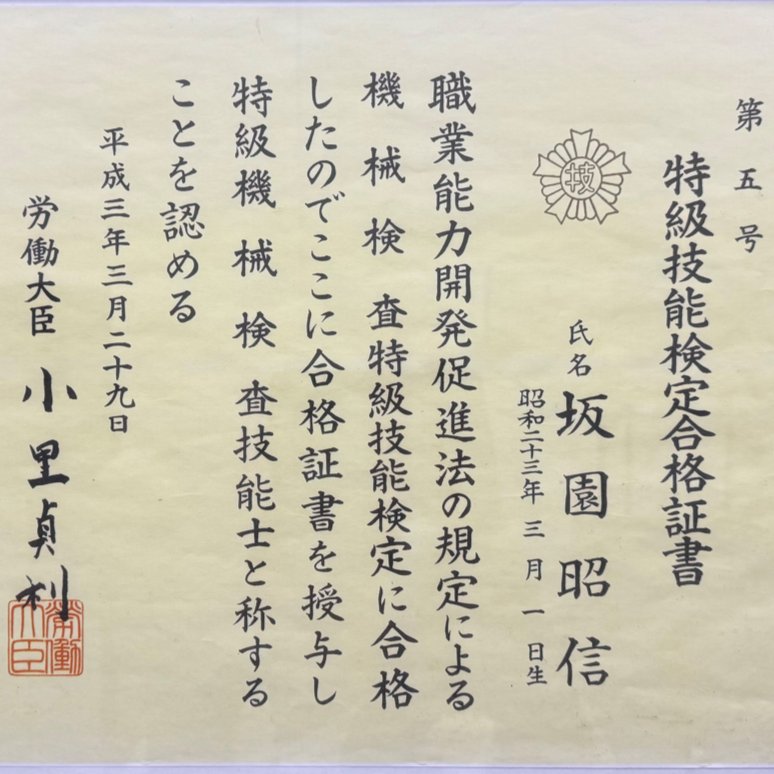 第五号
特級技能検定合格証書
技
氏名 坂園昭信
昭和二十三年三月一日生
職業能力開発促進法の規定による
機械検査特級技能検定に合格
したのでここに合格証書を授与し
特級機械検査技能士と称する
ことを認める
平成三年三月二十九日
労働大臣 小里貞利
労働大臣